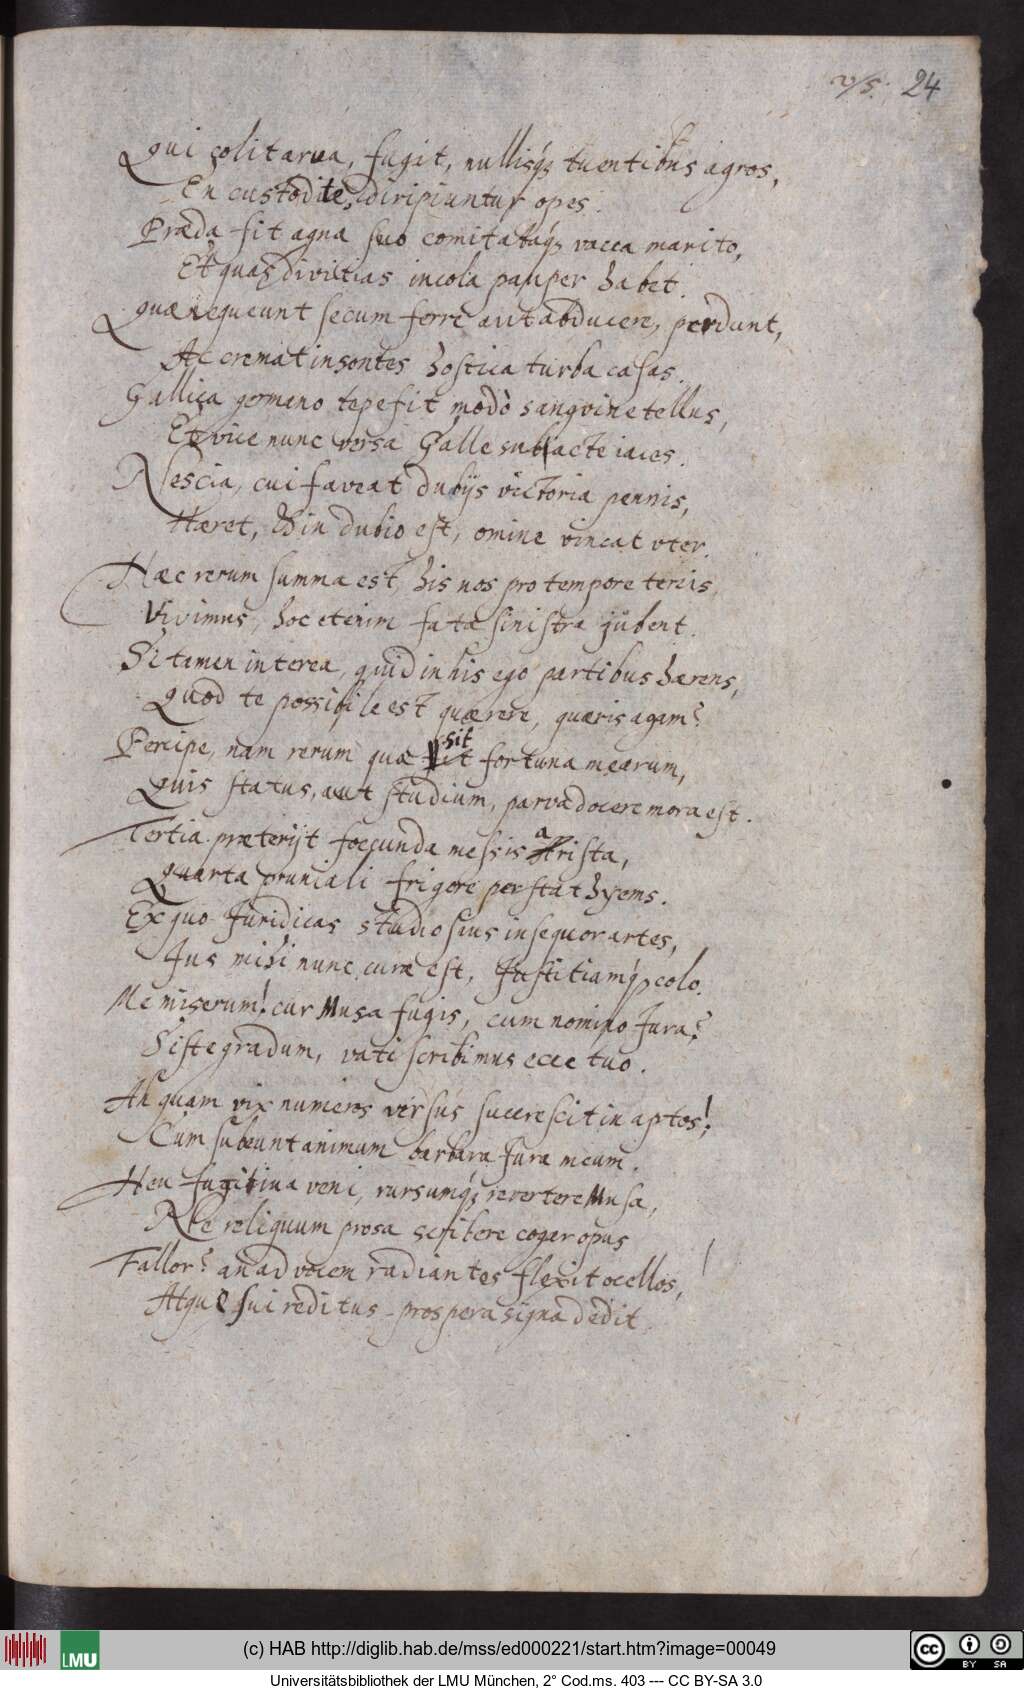 24
Qui solitarva, fugit, nullisq́ʒ tuentibus agros,
En custodite, diripiuntur opes.
Præda fit agna suo comitataq́ʒ vacca marito,
Et quas divitias incola pauper habet.
Quæ nequeunt secum ferre aut abducere, perdunt,
Ac cremat insontes hostica turba casas.
Gallica germano tepefit modò sangvine tellus,
Et vice nunc versa Galle subacte iaces.
Nescia, cui faveat dubijs victoria pennis,
Hæret, & in dubio est, omine vincat vter.
Hæc rerum summa est, his nos pro tempore tercis
Vivimus, hoc etenim fata sinistra jubent.
Si tamen interea, quid in his ego partibus hærens,
Quod te possibile est quærere, quæris agam?
Percipe, nam rerum quæ sit fortuna mearum,
Quis status, aut studium, parva docere mora est.
Tertia præterijt foecunda messis arista,
Quarta pruniali frigore perstat hyems.
Ex quo Juridicas studiosius insequor artes,
Jus mihi nunc curæ est, Justitiamq́ʒ colo.
Me miserum! cur Musa fugis, cum nomino Jura?
Siste gradum, vati scribimus ecce tuo.
Ah quam vix numeros versus succrescit in aptos!
Cum subeunt animum barbara Jura meum.
Heu fugitiva veni, rursumq́ʒ revertere Musa,
Ne reliquum prosa scribere cogar opus
Fallor? an ad vocem radiantes flexit ocellos,
Atque sui reditus prospera signa dedit.
(c) HAB http://diglib.hab.de/mss/ed000221/start.htm?image=00049
LMU
cc BY SA
Universitätsbibliothek der LMU München, 2° Cod.ms. 403 --- CC BY-SA 3.0